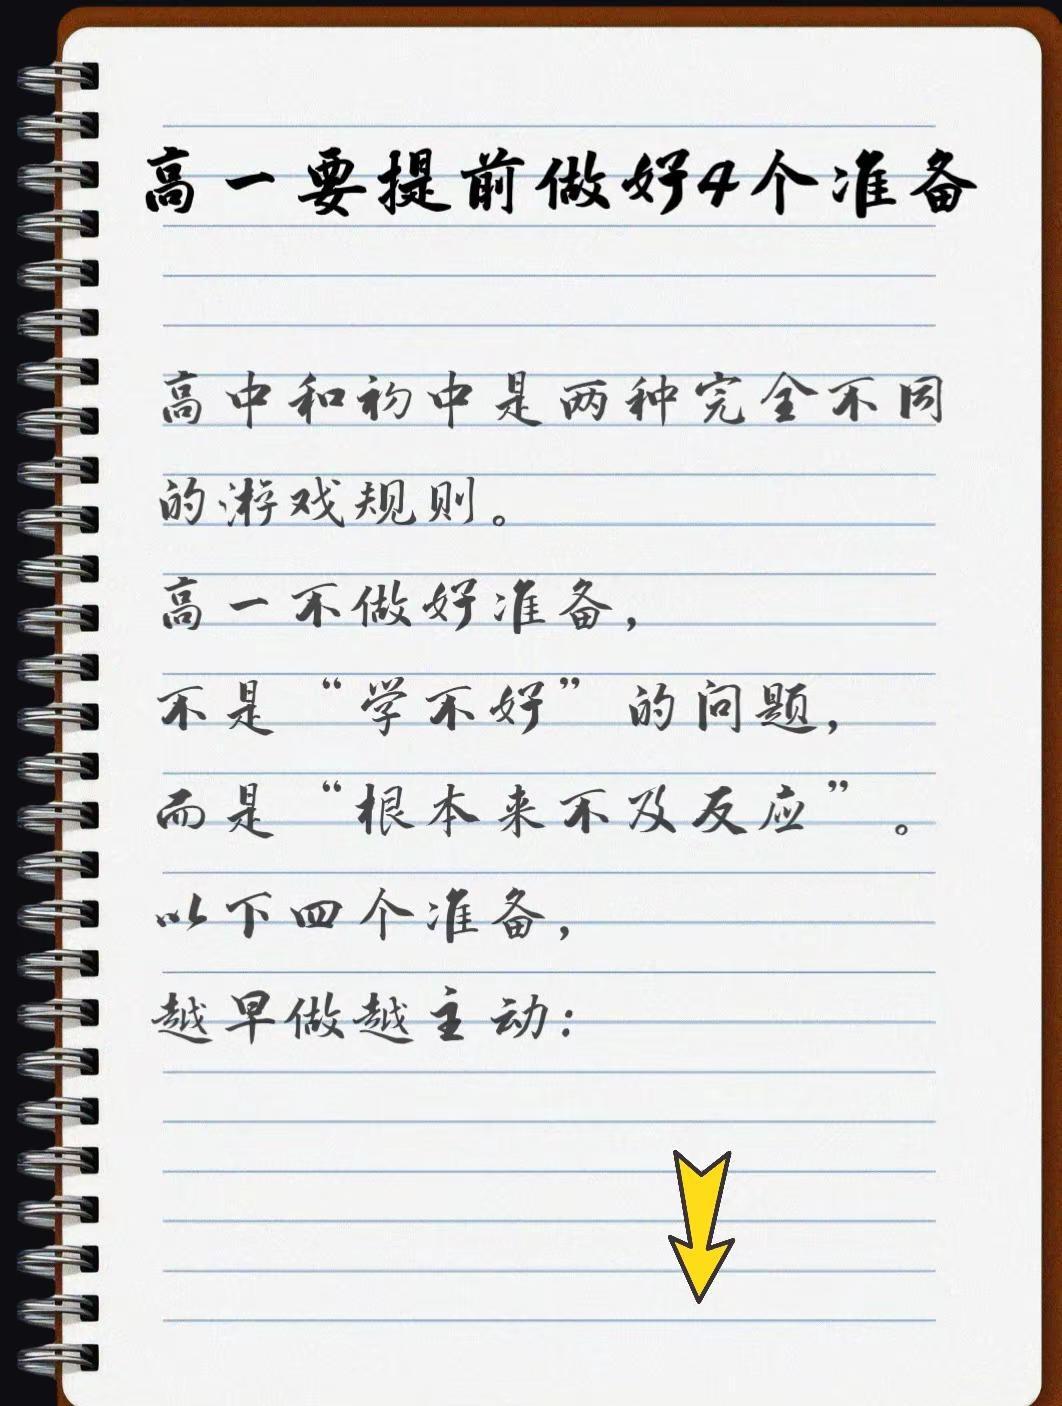 高一要提前做好4个准备
高中和初中是两种完全不同
的游戏规则。
高一不做好准备，
不是“学不好”的问题，
而是“根本来不及反应”。
以下四个准备，
越早做越主动：